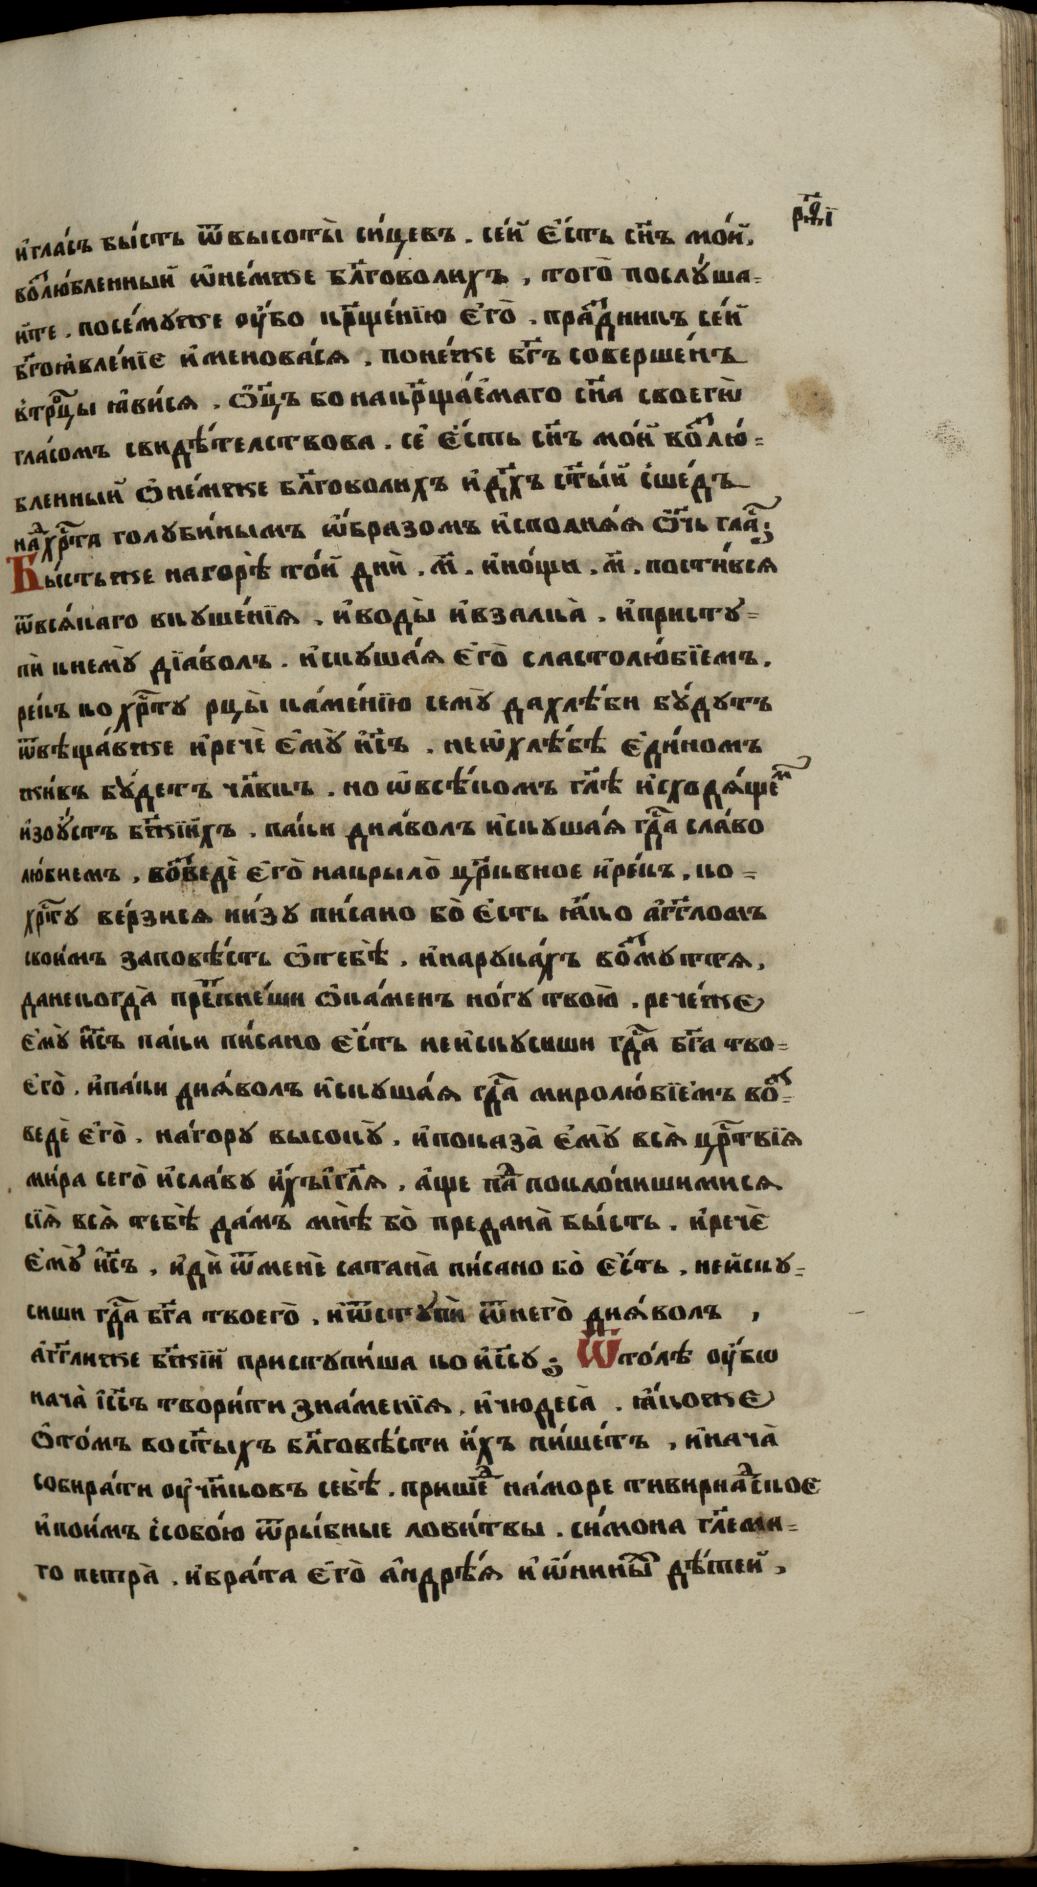 р҃ѳ҃і
и҆гла́съ бы́сть ѿвысоты̀ си́цевъ . се́й є҆́сть сн҃ъ мо́й,
во҆злю́бленный ѡ҆не́мже бл҃говолихъ , того̀ послꙋ́ша=
и҆те . посе́мꙋже ᲂу҆́бо кр҃щенїю є҆го̀ . пра́здникъ се́й
бг҃оꙗвле́нїе и҆менова́ся . поне́же бг҃ъ соверше́нъ
в̾тр҃ѡцы ꙗ҆ви́ся . Ѻ҆ц҃ъ бо накр҃ща́емаго сн҃а своегѡ̀
гла́сомъ свидѣ́телствова . се є҆́сть сн҃ъ мо́й во҆злю́=
бленный ѻ҆не́мже бл҃говолихъ и҆дх҃ъ ст҃ы́й сше́дъ
на́дхр҃та голꙋби́нымъ ѡ҆́бразомъ и҆сполня́я ѻ҆́чь гла́с;
Бы́стьже нагорѣ̀ то́й дні́й . м҃ . и҆но́щи . м҃ . пости́вся
ѿвся́каго вкꙋше́нїя . и҆воды̀ и҆взалка̀ . и҆пристꙋ=
пѝ кнемꙋ̀ дїа́волъ . и҆скꙋша́я є҆го̀ сластолю́бїемъ .
ре́къ ко хр҃тꙋ рцы̀ ка́менїю семꙋ̀ дахлѣ́би бꙋ́дꙋтъ
ѿвѣща́вже и҆речѐ є҆мꙋ̀ і҆с҃ъ . неѡ҆хлѣ́бѣ є҆ди́номъ
жи́въ бꙋ́детъ чл҃вкъ . но ѡ҆всѣ́комъ гл҃ѣ и҆сходя́щем
изоу́стъ бж҃їихъ . па́ки дия́волъ и҆скꙋша́я гд҃а сла́во
лю́биемъ , во҆зведѐ є҆го̀ накрыло̀ цр҃ковное и҆ре́къ . ко =
хр҃тꙋ ве́рзися ни́зꙋ пи́сано бо̀ є҆сть ꙗ҆́ко а҆́гг҃ломъ
свои́мъ заповѣ́сть ѻ҆тебѣ̀ . и҆нарꙋка́хъ во҆змꙋття,
данекогда̀ пр҃ткне́ши ѻ҆ка́менъ но́гꙋ твою̀ . рече́же
є҆мꙋ̀ і҆с҃ъ па́ки пи́сано є҆́сть неи҆скꙋсиши гд҃а бг҃а тво=
є҆го̀ . и҆па́ки дия́волъ и҆скꙋша́я гд҃а миролю́бїемъ во҆з=
ведѐ є҆го̀ . нагорꙋ высо́кꙋ̀ . и҆показа̀ є҆мꙋ̀ вся̀ цр҃твїя
ми́ра сего̀ и҆сла́вꙋ и҆́хъи҆гл҃я . а҆́ще па́д поклонишимися
сїя̀ вся̀ тебѣ̀ да́мъ мнѣ̀ бо̀ предана̀ бы́сть . и҆речѐ
є҆мꙋ̀ і҆с҃ъ . и҆дѝ ѿменѐ сатана̀ пи́сано бо̀ є҆́сть . неи҆скꙋ=
сиши гд҃а бг҃а твоего̀ . и҆ѿстꙋпѝ ѿнего̀ дия́волъ ,
а҆́гг҃лиже бж҃їи пристꙋпи́ша ко и҆с҃ꙋ ; Ѿто́лѣ ᲂу҆́бѡ
нача̀ і҆с҃ъ твори́ти зна́менїя . и҆чюдеса̀ . ꙗ҆́коже
ѻ҆то́мъ вост҃ыхъ бл҃говѣ́сти и҆́хъ пи́шетъ , и҆нача̀
собира́ти ᲂу҆чн҃ковъ себѣ̀ . прише́д на́море тивириа́дское
и҆пои́мъ ссобо́ю ѿры́бные лови́твы . си́мона гл҃еми=
го петра̀ . и҆бра́та є҆го̀ а҆ндрѣ́я и҆ и҆ѡ҆́нины дѣ́тей ,